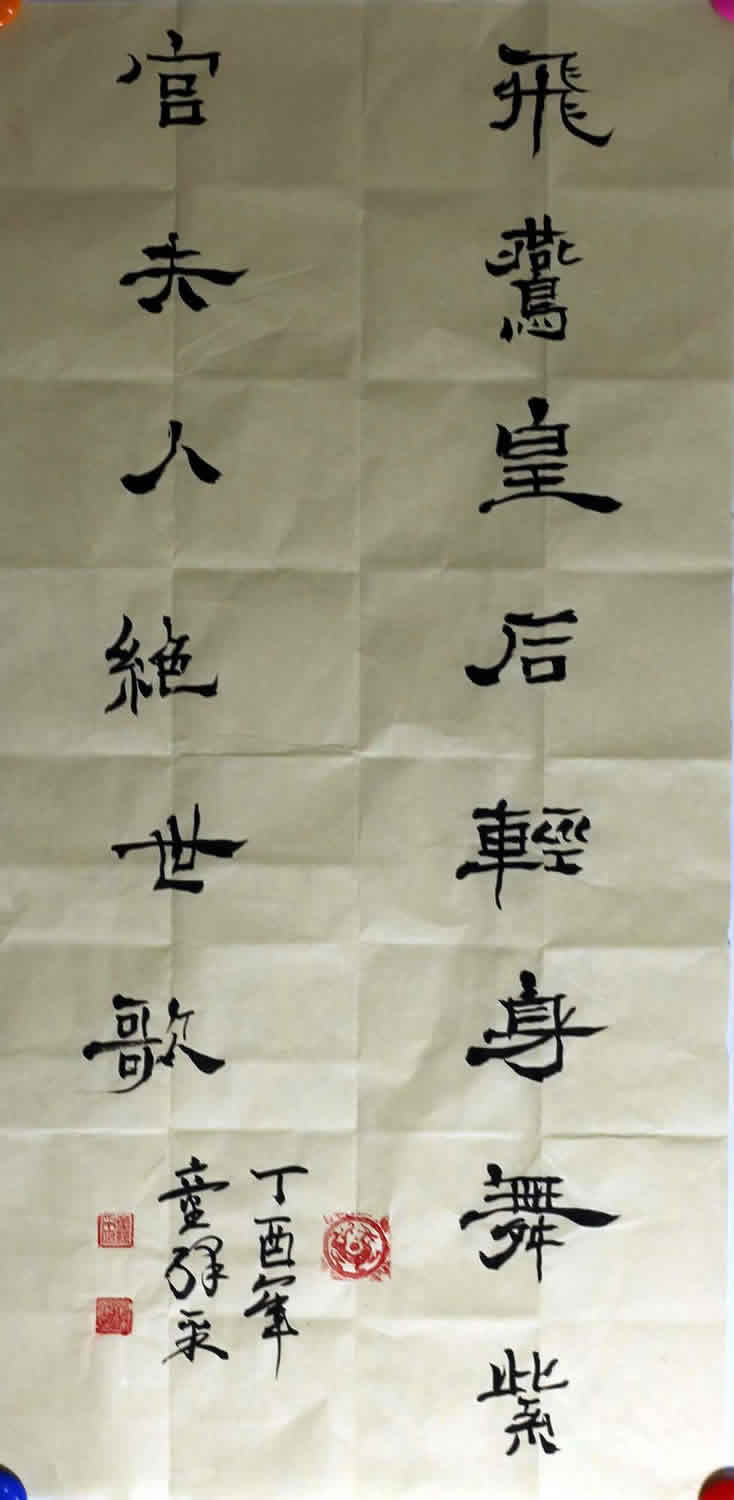 飛鷰皇后輕身舞紫
宮夫人絕世歌
丁酉年
童